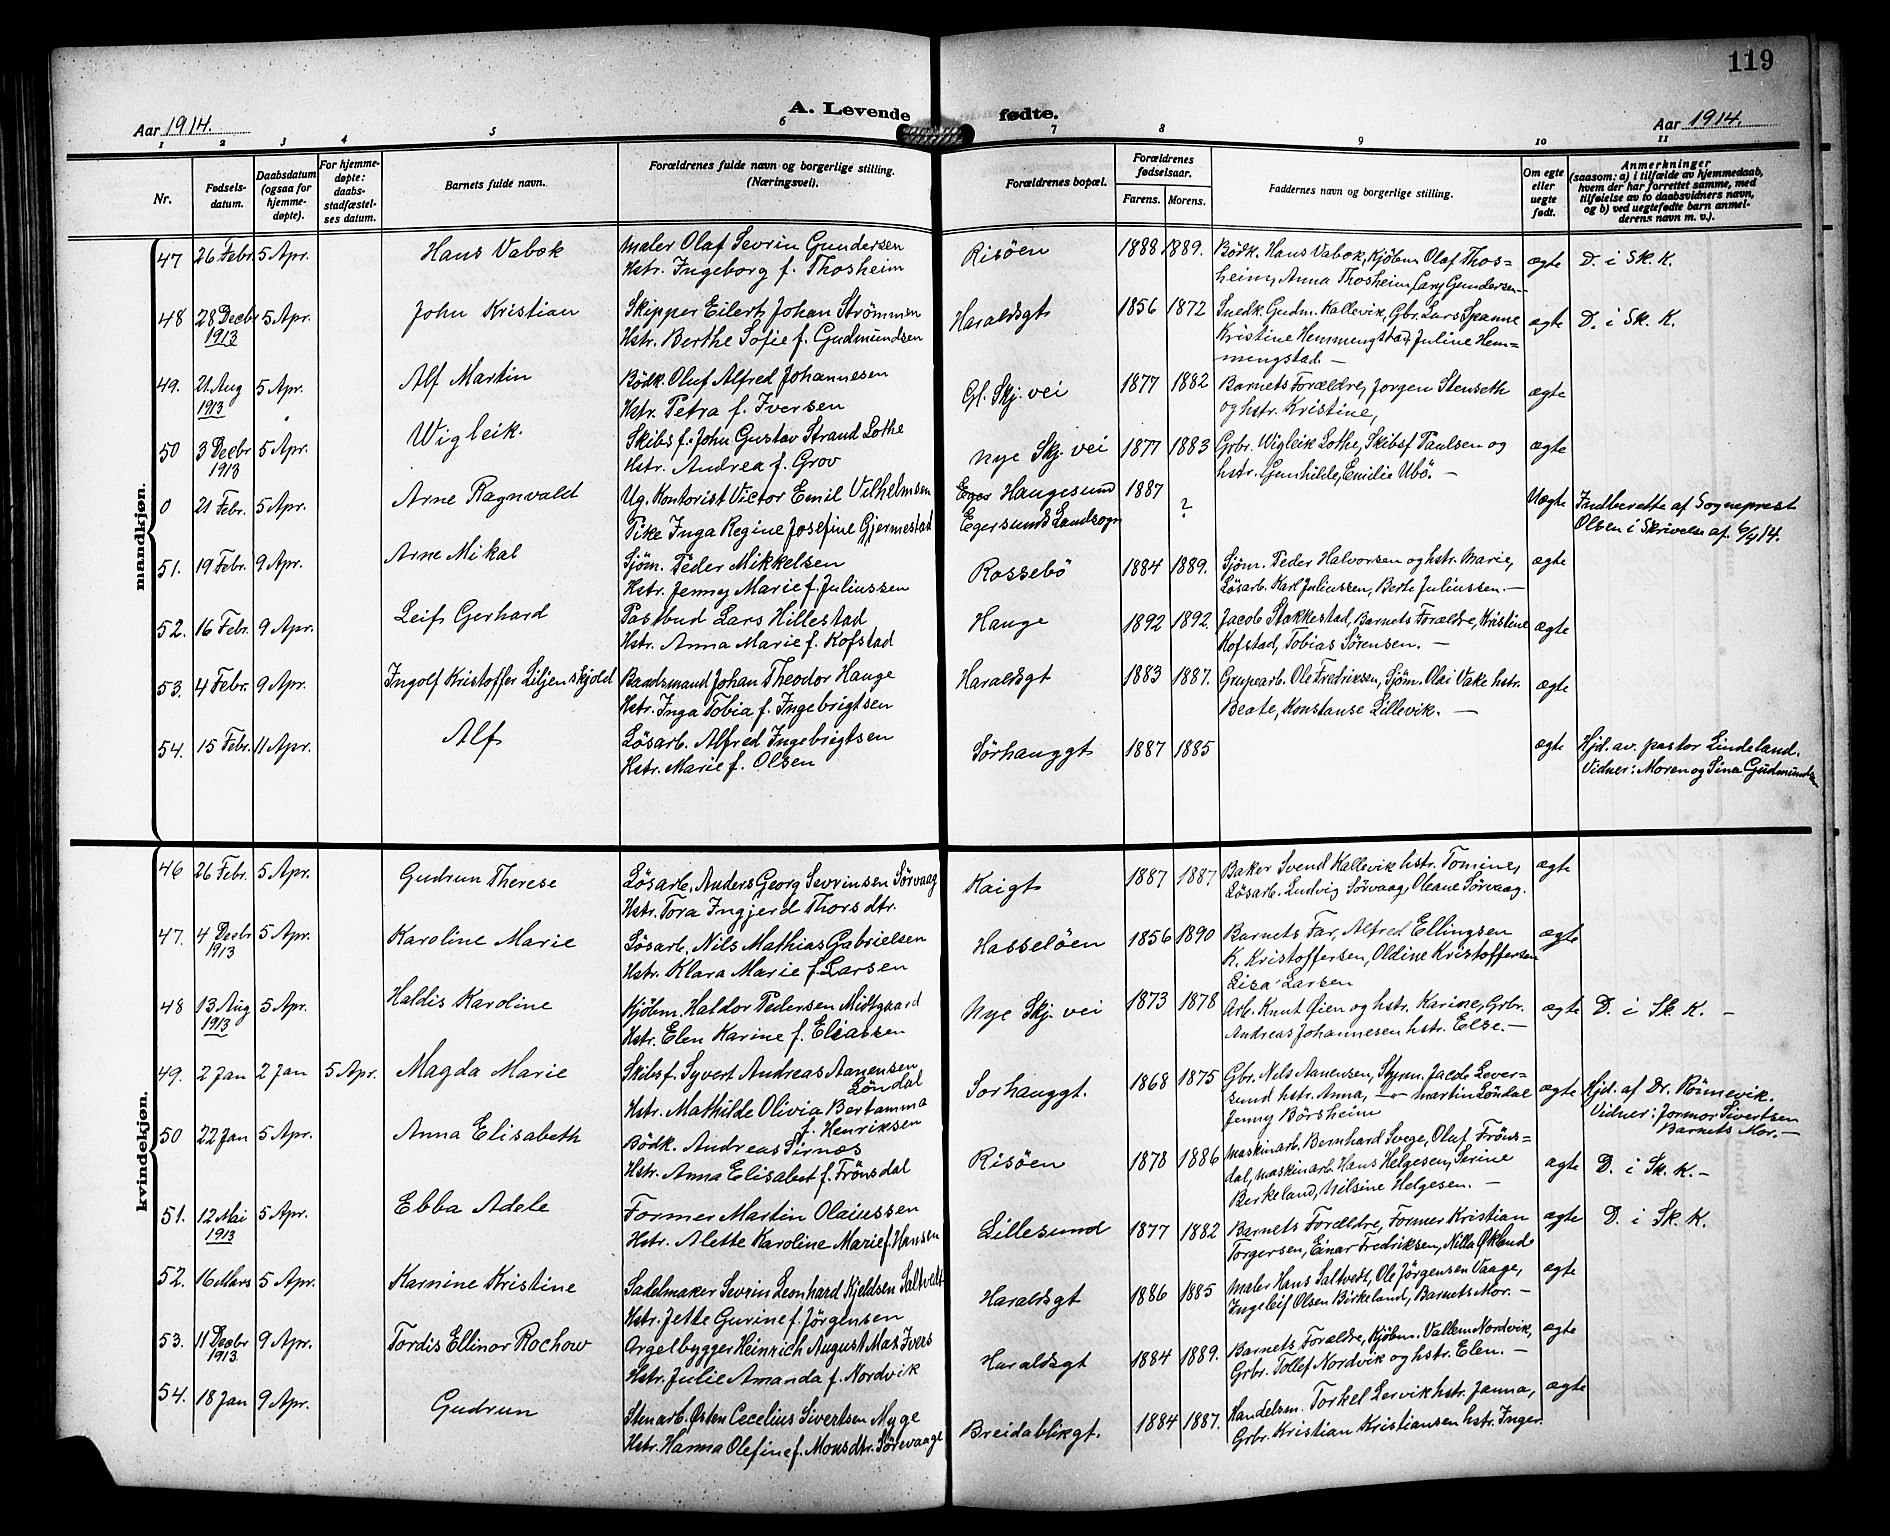 119
A. Levende fødte.
Aar 1914.
Aar 1914.
1 2 3 4 5 6 7 8 9 10 11
Nr.
Fødsels-
datum.
Daabsdatum
(ogsaa for
hjemme-
døpte).
For hjemme-
døpte:
daabs-
stadfæstel-
ses datum.
Barnets fulde navn.
Forældrenes fulde navn og borgerlige stilling.
(Næringsvei).
Forældrenes bopæl.
Forældrenes
fødselsaar.
Farens. Morens.
Faddernes navn og borgerlige stilling.
Om egte
eller
uegte
født.
Anmerkninger
(saasom: a) i tilfælde av hjemmedaab,
hvem der har forrettet samme, med
tilføielse av to daabsvidners navn,
og b) ved uegtefødte barn anmel-
derens navn m. v.).
mandkjøn.
47 26 Febr. 5 Apr. Hans Vabok Maler Olaf Sevrin Gundersen Risöen 1888. 1889. Bödk. Hans Vabok, Kjöbm Olaf Thos= ægte D. i Sk. K.
Hstr. Ingeborg f. Thosheim heim, Anna Thosheim, Lars Gundersen.—
48 28 Decbr 5 Apr. John Kristian Skipper Eilert Johan Strømmen Haraldsgt 1856 1872 Snedk. Gudm. Kallevik, Gbr. Lars Spanne ægte D. i Sk. K.
1913 Hstr. Berthe Sofie f. Gudmundsen Kristine Hemmengstad, Juline Hem=
mengstad.—
49. 21. Aug 5 Apr. Alf Martin Bödk. Oluf Alfred Johannesen Gl. Skj. vei 1877 1882 Barnets Forældre, Jorgen Stenseth ægte
1913 Hstr. Petra f. Iversen og hstr. Kristine,
50 3 Decbr 5 Apr. Wigleik. Skibsf. John Gustav Strand Lothe Nye Skj. vei 1877 1883 Grbr. Wigleik Lothe, Skibsf Paulsen og ægte
1913 Hstr. Andrea f. Grov hstr. Gunhilde, Emilie Ubö.—
0 21 Febr. 5 Apr. Arne Ragnvald Ug. Kontorist Victor Emil Vilhelmsen Haugesund 1887 Uægte Indberette af Sogneprest
Pike Inga Regine Josefine Gjermestad Egersunds Landsogn ? Olsen i Skrivelse af 6/4 14.
51. 19 Febr. 9 Apr. Arne Mikal Sjöm. Peder Mikkelsen Rossebö 1884 1889. Sjöm. Peder Halvorsen og hstr. Marie, ægte
Hstr. Jenny Marie f. Juliussen Lösarb. Karl Juliussen, Berte Juliussen.—
52. 16 Febr. 9 Apr. Leif Gerhard Postbud Lars Hillestad Hauge 1892 1892. Jacob Stakkestad, Barnets Forældre, Kristine ægte
Hstr. Anna Marie f. Kofstad Hofstad, Tobias Sörensen.—
53. 4 Febr. 9 Apr. Ingolf Kristoffer Liljenskjold Baadsmand Johan Theodor Hauge Haraldsgt 1883 1887. Grupearb. Ole Fredriksen, Sjöm. Olai Vake hstr. ægte
Hstr. Inga Tobia f. Ingebrigtsen Beate, Konstanse Lillevik.—
54. 15 Febr. 11 Apr. Alf Lösarb. Alfred Ingebrigtsen Sörhauggt 1887 1885 ægte Hjd. av. pastor Lindeland.
Hstr. Marie f. Olsen Vidner: Moren og Sina Gudmundsen
kvindekjøn.
46 26 Febr. 5 Apr. Gudrun Therese Lösarb. Anders Georg Sevrinsen Sörvaag Kaigt 1887 1887 Baker Svend Kallevik hstr. Tomine, ægte
Hstr. Tora Ingjerd Thorsdtr. Lösarb. Ludvig Sörvaag, Oleane Sörvaag.
47. 4 Decbr 5 Apr. Karoline Marie Lösarb. Nils Mathias Gabrielsen Hasselöen 1856 1890 Barnets Far, Alfred Ellingsen ægte
1913 Hstr. Klara Marie f Larsen K. Kristoffersen, Oldine Kristoffersen
Lisa Larsen
48 13 Aug 5 Apr. Haldis Karoline Kjöbm. Haldor Pedersen Midtgaard Nye Skj. vei 1873 1878 Arb. Knut Öien og hstr. Karine, Grbr. ægte D. i Sk. K. —
1913 Hstr. Elen Karine f. Eliassen Andreas Johannesen hstr. Else.—
49. 2 Jan 2 Jan 5 Apr. Magda Marie Skibsf. Syvert Andreas Aanensen Sorhauggt. 1868 1875 Gbr. Nils Aanensen, Styrm. Jacob Lever= ægte Hjd. af Dr. Rönnevik.
Löndal sund hstr. Anna, —"— Martin Löndal Vidner: Jormor Sivertsen
Hstr. Mathilde Olivia Bertamma Jenny Börsheim Barnets Mor.—
f. Henriksen
50 22 Jan 5 Apr. Anna Elisabeth Bödk. Andreas Sirnæs Risöen 1878 1886 Maskinarb. Bernhard Svege, Oluf Fröns= ægte D. i Sk. K.—
Hstr. Anna Elisabet f. Frönsdal dal, Maskinarb. Hans Helgesen, Serine
Birkeland, Nilsine Helgesen.—
51. 12 Mai 5 Apr. Ebba Adele Former Martin Olaiussen Lillesund 1877 1882 Barnets Forældre, Former Kristian ægte D. i Sk. K.
1913 Hstr. Alette Karoline Marie f. Hansen Torgersen, Einar Fredriksen, Nilla Økland
52. 16 Mars 5 Apr. Karnine Kristine Sadelmaker Sevrin Leonhard Kjeldsen Saltvedt Haraldsgt 1886 1885 Maler Hans Saltvedt, Ole Jörgensen Vaage, ægte
Hstr. Jette Gurine f. Jörgensen Ingeleif Olsen Birkeland, Barnets Mor.—
53. 11 Decbr 9 Apr. Tordis Ellinor Rochow Orgelbygger Heinrich August Max Ivers Haraldsgt 1884 1889. Barnets Forældre, Kjöbm. Vallem Nordvik, ægte
1913 Hstr. Julie Amanda f. Nordvik Grbr. Tollef Nordvik og hstr. Elen.—
54. 18 Jan 9 Apr. Gudrun Stenarb. Østen Cecelius Sivertsen Myge Breidablikgt. 1884 1887. Handelsm. Torkel Lervik hstr. Janna, ægte
Hstr. Hanna Olefine f. Monsdtr. Sörevaage Grbr. Kristian Kristiansen hstr. Inger.